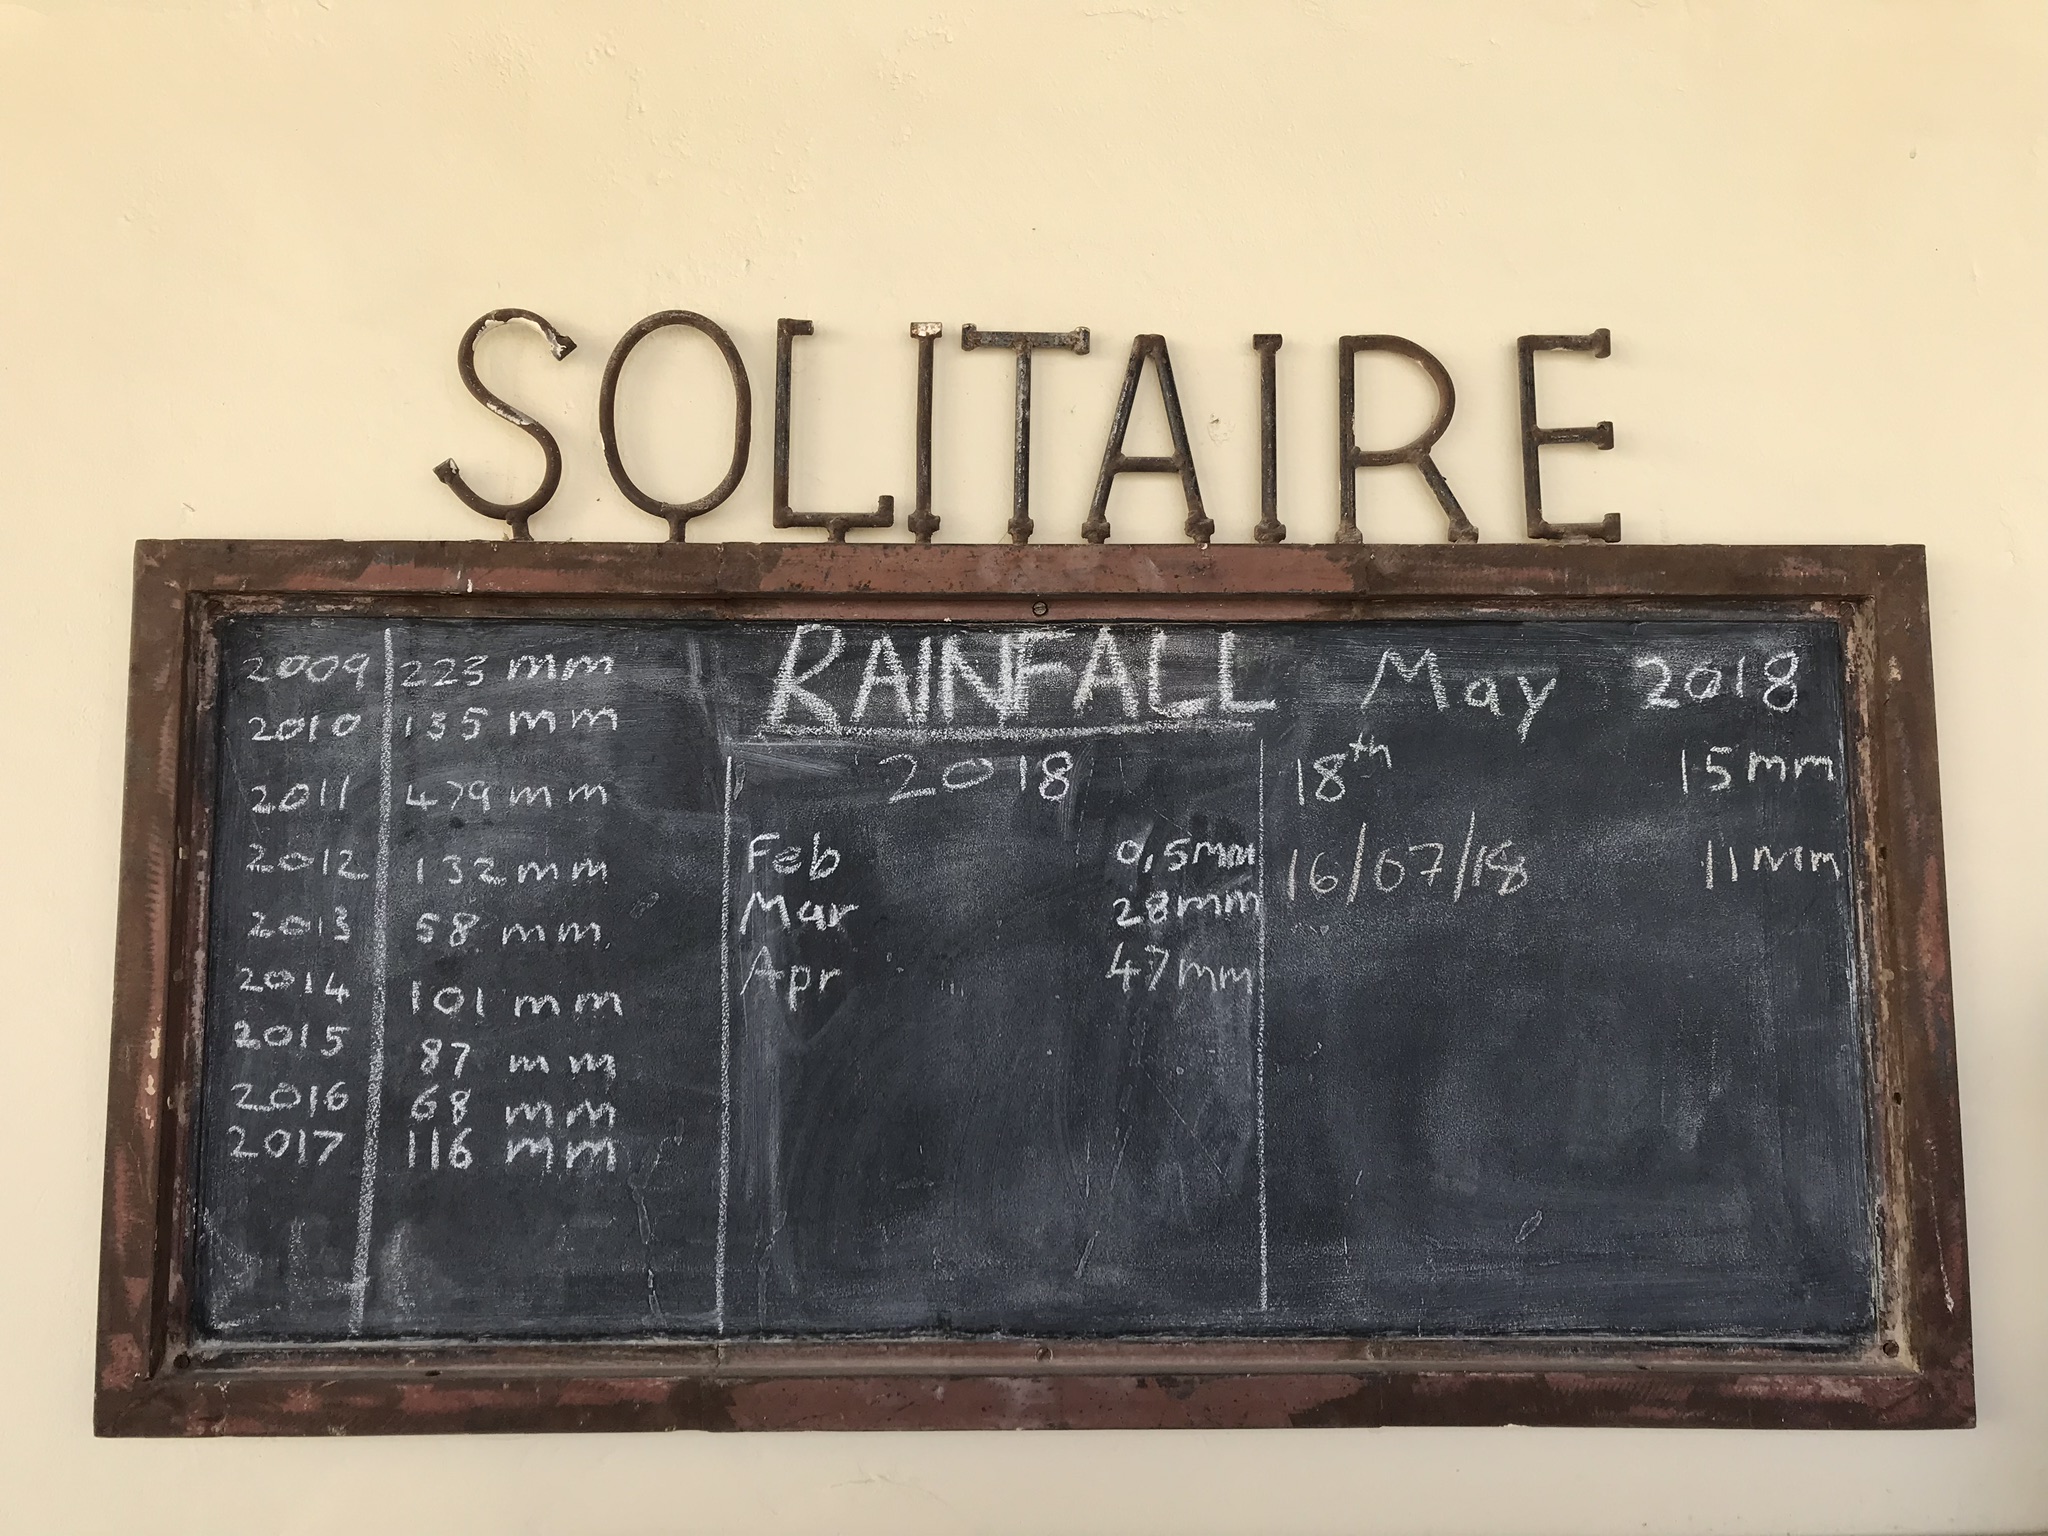 SOLITAIRE
RAINFALL
2009 223 mm
2010 135 mm
2011 479 mm
2012 132 mm
2013 58 mm
2014 101 mm
2015 87 mm
2016 68 mm
2017 116 mm
2018
Feb 0,5mm
Mar 28mm
Apr 47mm
May 2018
18th 15mm
16/07/18 11mm